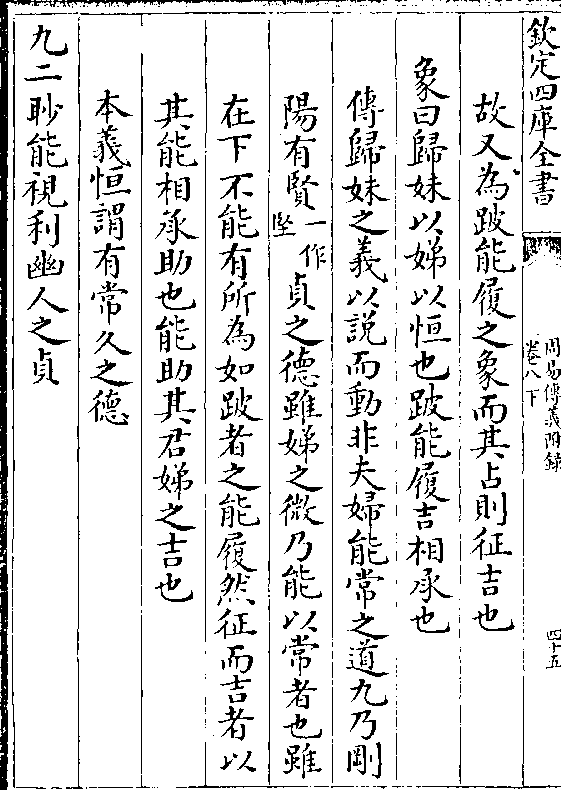 欽定四庫全書
周易傳義附錄
卷八下
四十五
故又為跛能履之象而其占則征吉也
象曰歸妹以娣以恒也跛能履吉相承也
傳歸妹之義以説而動非夫婦能常之道九乃剛
陽有賢一作堅貞之德雖娣之微乃能以常者也雖
在下不能有所為如跛者之能履然征而吉者以
其能相承助也能助其君娣之吉也
本義恒謂有常久之德
九二眇能視利幽人之貞